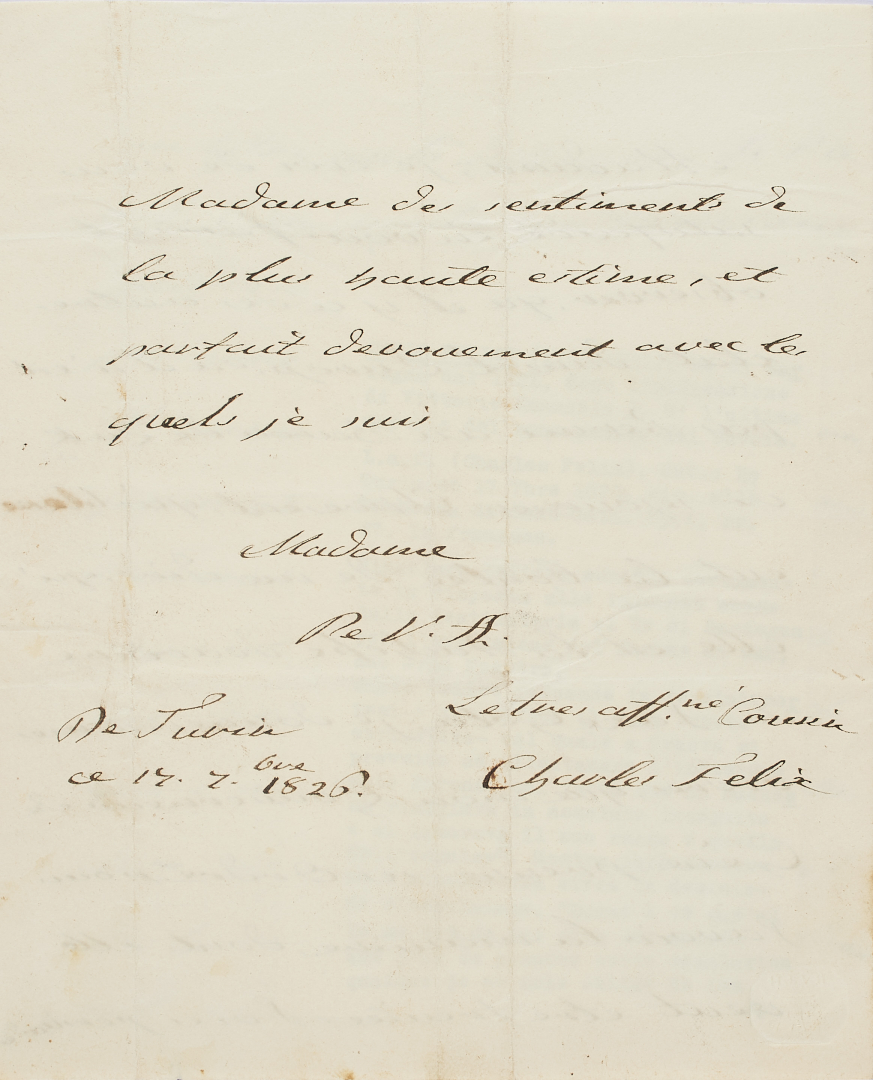 Madame des sentiments de
la plus haute estime, et
parfait devouement avec les
quels je suis
Madame
De V. A.
Le tres aff.né Cousin
De Turin
ce 17. 7.bre 1826.
Charles Felix